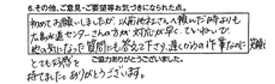 6.その他、ご意見・ご要望等お気づきになられた点。
初めてお願いしましたが、以前他社さんへ頼んだ時よりも
広島水道センターさんの方が対応が早く、ていねいで、
他の気になった質問にも答えて下さり、遅くからの作業なのに笑顔で
とても好感を
持てました。ありがとうございます。
ご協力ありがとうございました。